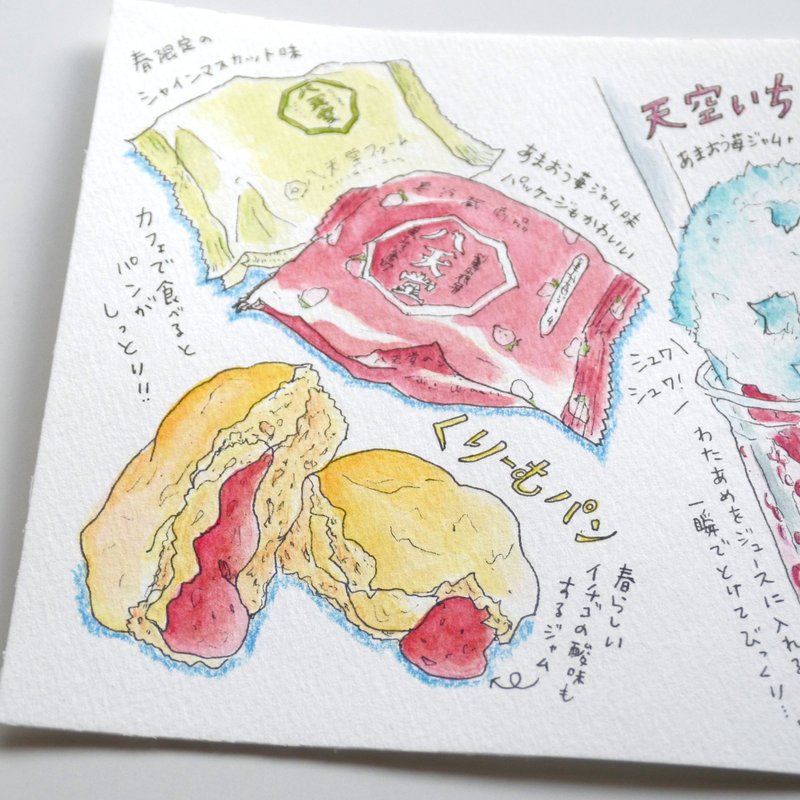 春限定の
シャインマスカット味
八天堂
八天堂ファーム
カフェで食べると
パンが
しっとり!!
あまおう苺ジャム味
パッケージもかわいい
八天堂
くりーむパン
春らしい
イチゴの酸味も
するジャム
天空いち
あまおう苺ジャム
シュワ
シュワ!
わたあめをジュースに入れる
一瞬でとけてびっくり…